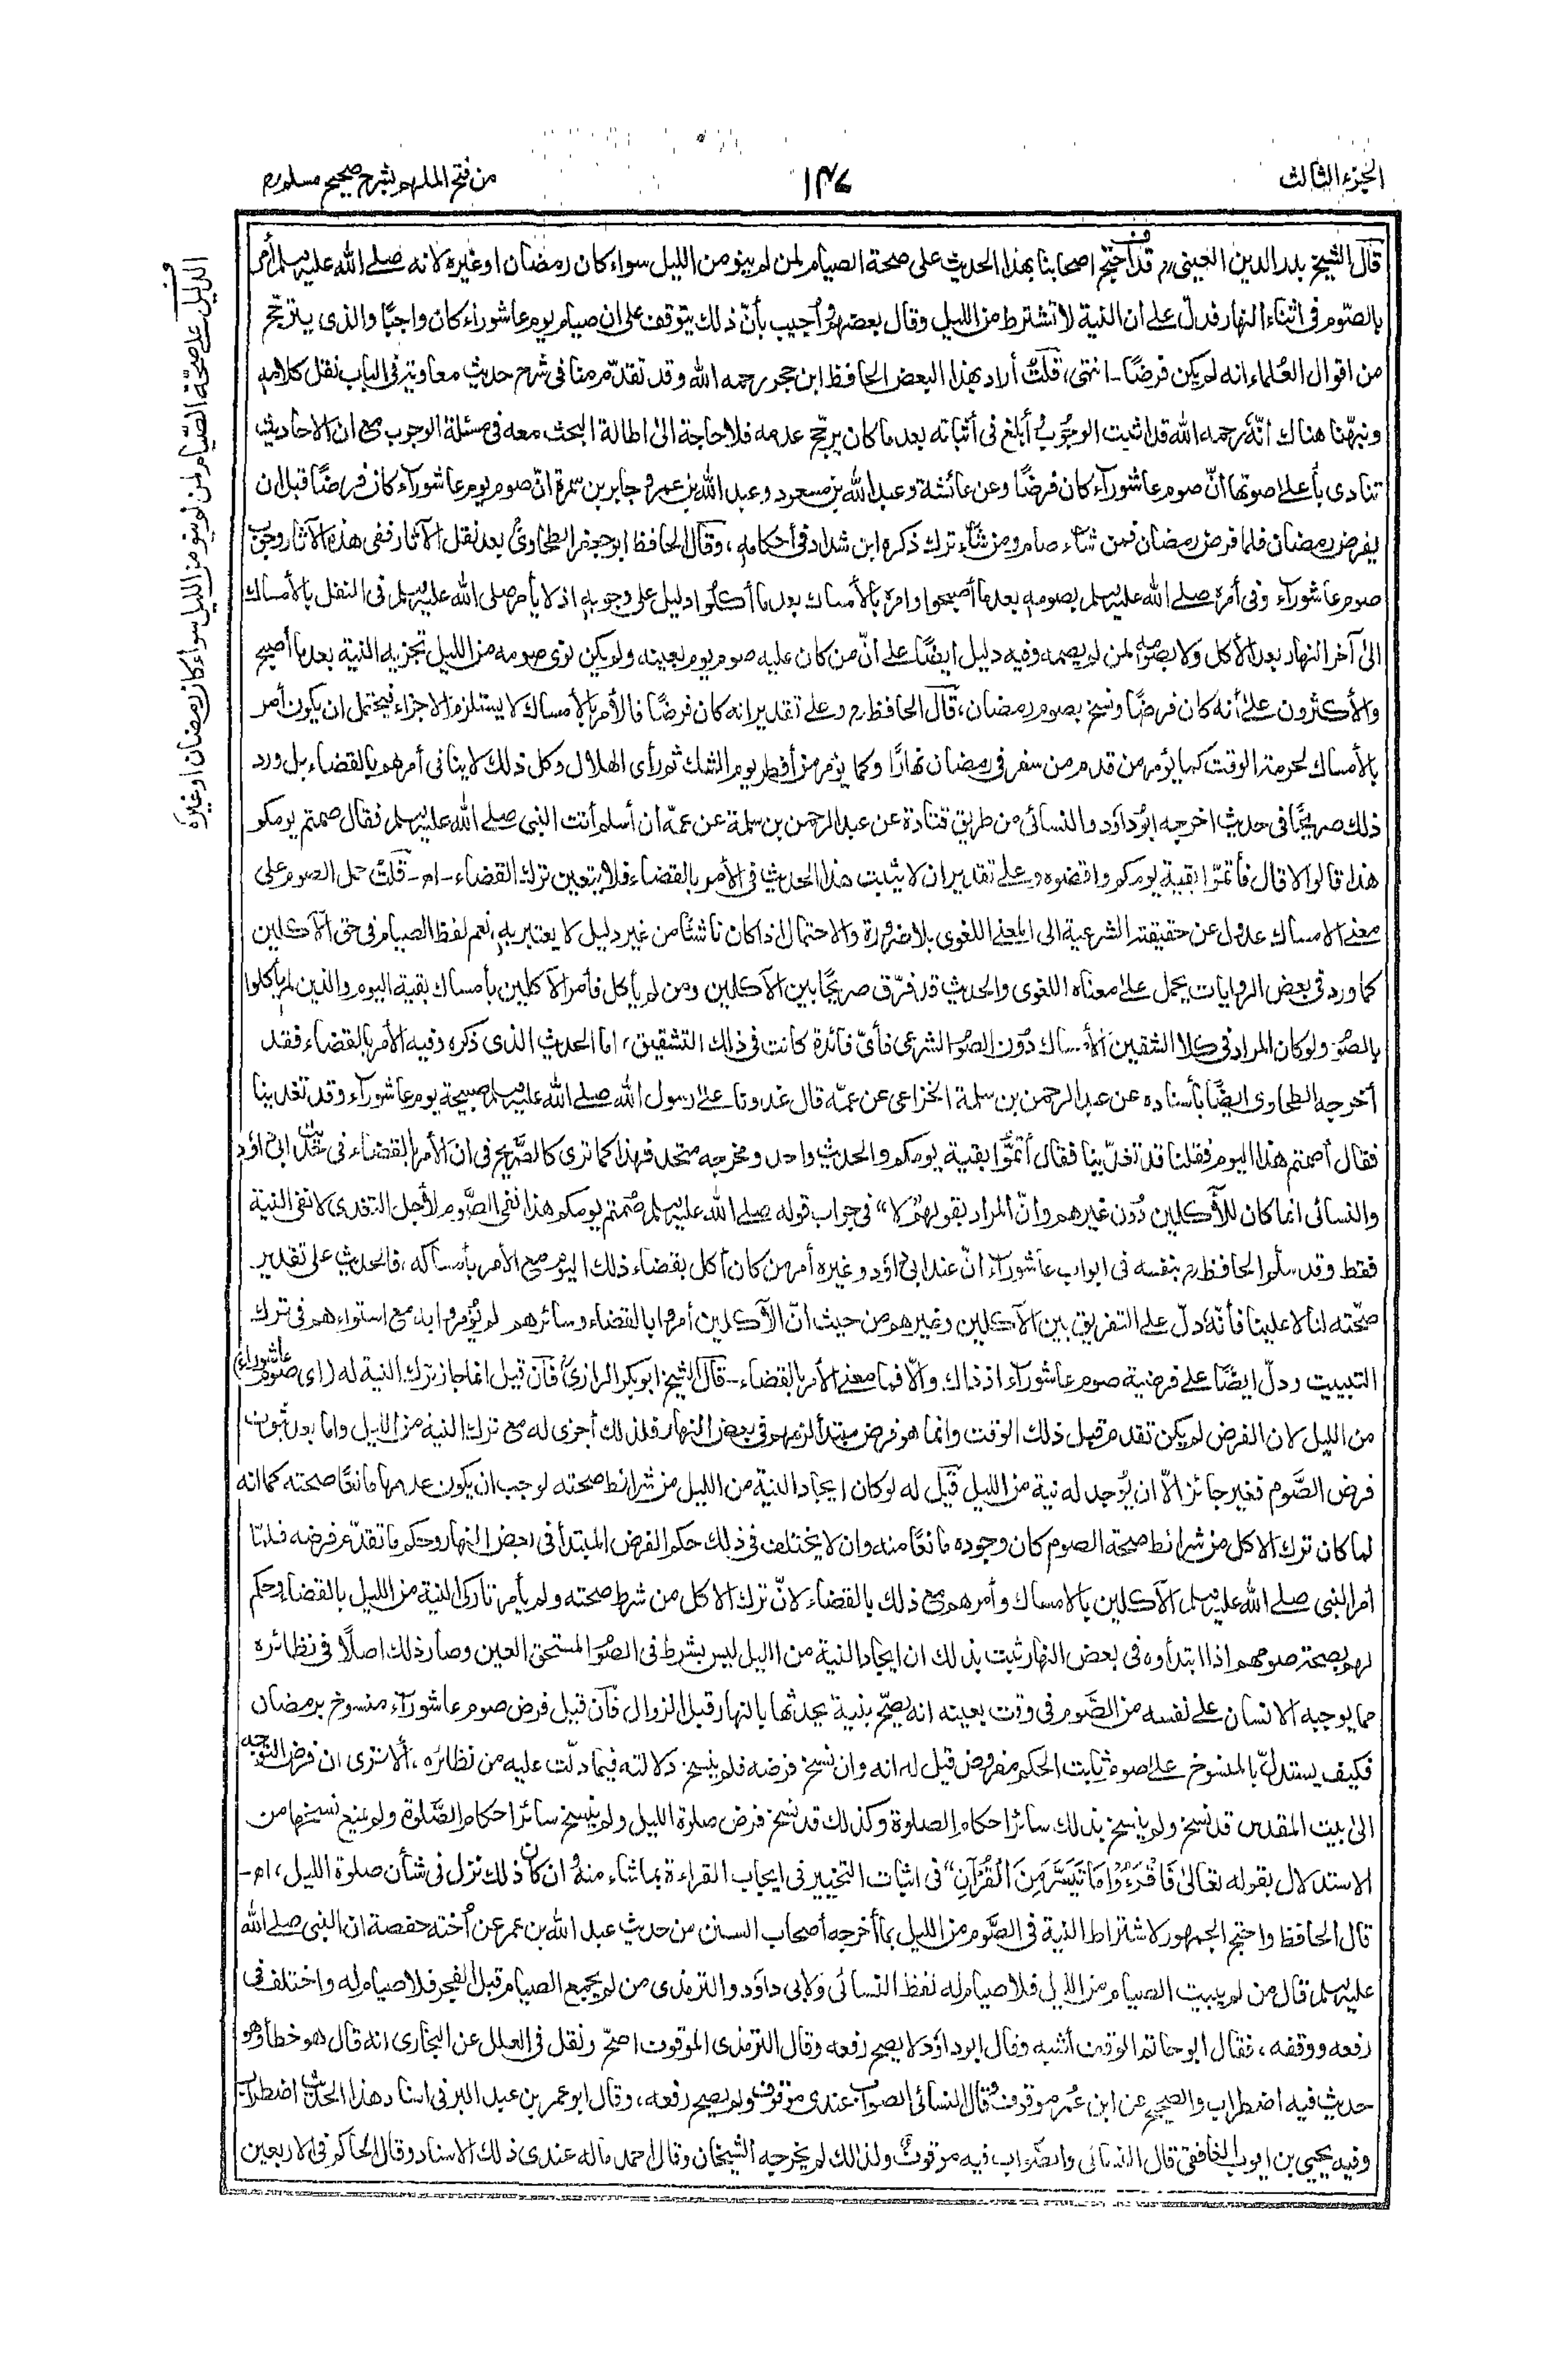 الجزء الثالث
١٤٧
من فتح الملهم بشرح صحيح مسلم
الدليل على صحة الصيام لمن لم ينو من الليل سواء كان رمضان او غيره
قال الشيخ بدر الدين العيني قد احتج اصحابنا بهذا الحديث على صحة الصيام لمن لم ينو من الليل سواء كان رمضان او غيره لانه صلے الله عليه وسلم أمر
بالصّوم فى اثناء النهار فدلّ علے ان النية لا تشترط من الليل وقال بعضهم وأجيب بأنّ ذلك يتوقف على ان صيام يوم عاشوراء كان واجبًا والذى يترجّح
من اقوال العُلماء انه لم يكن فرضًا- انتهى، قلتُ أراد بهذا البعض الحافظ ابن حجر رحمه الله وقد تقدّم منا فى شرح حديث معاوية فى الباب نقل كلامهِ
ونبهّنا هناك انّهُ رحمه الله قد اثبت الوجوب وأبلغ فى أثباته بعد ما كان يرجّح عدمه فلا حاجة الىٰ اطالة البحث معه فى مسئلة الوجوب مع ان الاحاديث
تنادى بأعلے صوتها انّ صوم عاشوراء كان فرضًا وعن عائشة وعبد الله بن مسعود وعبد الله بن عمر وجابر بن سمرة انّ صوم يوم عاشوراء كان فرضًا قبل ان
يفرض رمضان فلما فرض رمضان فمن شاء صام ومن شاء ترك ذكره ابن شداد فى أحكامهِ، وقال الحافظ ابو جعفر الطحاوىُّ بعد نقل الآثار ففى هذه الآثار وجوب
صوم عاشوراء وفى أمره صلے الله عليه وسلم بصومهِ بعد ما أصبحوا وامره بالأمساك بعد ما أكلوا دليل على وجوبهِ اذ لا يأمر صلى الله عليه وسلم فى النفل بالأمساك
الىٰ آخر النهار بعد الأكل ولا بصومهِ لمن لم يصمه وفيه دليل ايضًا علے أنّ من كان عليه صوم يوم بعينه ولم يكن نوى صومه من الليل تجزيه النية بعد ما أصبح
والأكثرون علے أنه كان فرضًا ونسخ بصوم رمضان، قال الحافظ وعلے تقدير انه كان فرضًا فالأمر بالأمساك لا يستلزم الاجزاء فيحتمل ان يكون أمر
بالأمساك لحرمة الوقت كما يؤمر من قدم من سفر فى رمضان نهارًا وكما يؤمر من أفطر يوم الشك ثم رأى الهلال وكل ذلك لا ينافى أمرهم بالقضاء بل ورد
ذلك صريحًا فى حديث اخرجه ابو داود والنسائى من طريق قتادة عن عبد الرحمن بن سلمة عن عمه أن أسلم أتت النبى صلے الله عليه وسلم فقال صمتم يومكم
هذا قالوا لا قال فأتمّوا بقية يومكم واقضوه وعلے تقدير ان لا يثبت هذا الحديث فى الأمر بالقضاء فلا يتعين ترك القضاء- اھ- قلت حمل الصوم على
معنے الامساك عدول عن حقيقته الشرعية الى المعنے اللغوى بلا ضرورة والاحتمال اذا كان ناشئًا من غير دليل لا يعتبر به، نعم لفظ الصيام فى حق الآكلين
كما ورد فى بعض الروايات يحمل علے معناه اللغوى والحديث قد فرّق صريحًا بين الآكلين ومن لم يأكل فأمر الآكلين بأمساك بقية اليوم والذين لم يأكلوا
بالصوم ولو كان المراد فى كلا الشقين الأمساك دُون الصوم الشرعى فأىّ فائدة كانت فى ذلك التشقيق، اما الحديث الذى ذكره وفيه الأمر بالقضاء فقد
أخرجه الطحاوى ايضًا بأسناده عن عبد الرحمن بن سلمة الخزاعى عن عمّه قال غدونا علے رسول الله صلے الله عليه وسلم صبيحة يوم عاشوراء وقد تغدينا
فقال أصمتم هذا اليوم فقلنا قد تغدّينا فقال أتمّوا بقية يومكم والحديث واحد ومخرجه متحد فهذا كما ترى كالصريح فى ان الأمر بالقضاء فى حديث ابى داؤد
والنسائى انما كان للآكلين دُون غيرهم وانّ المراد بقولهم "لا" فى جواب قوله صلے الله عليه وسلم صُمتم يومكم هذا نفى الصَّوم لأجل التغدى لا نفى النية
فقط وقد سلّم الحافظ بنفسه فى ابواب عاشوراء انّ عند ابى داؤد وغيره أمر من كان أكل بقضاء ذلك اليوم مع الأمر بأمساكه، فالحديث على تقدير
صحّته لنا لا علينا فأنّه دلّ على التفريق بين الآكلين وغيرهم من حيث انّ الآكلين أمروا بالقضاء وسائرهم لم يؤمروا به مع استواءهم فى ترك
التبييت ودلّ ايضًا على فرضية صوم عاشوراء اذ ذاك والّا فما معنے الأمر بالقضاء- قال الشيخ ابو بكر الرازىُّ فأن قيل انما جاز ترك النية له (اى صوم عاشوراء)
من الليل لان الفرض لم يكن تقدم قبل ذلك الوقت وانما هو فرض مبتدأ لزمهم فى بعض النهار فلذلك أجزى له مع ترك النية من الليل واما بعد ثبوت
فرض الصَّوم فغير جائز الّا ان يُوجد له نية من الليل قيل له لو كان ايجاد النية من الليل من شرائط صحته لوجب ان يكون عدمها مانعًا صحته كما انه
لما كان ترك الاكل من شرائط صحة الصوم كان وجوده مانعًا منه وان لا يختلف فى ذلك حكم الفرض المبتدأ فى بعض النهار وحكم ما تقدّم فرضه فلمّا
امر النبى صلے الله عليه وسلم الآكلين بالامساك وأمرهم مع ذلك بالقضاء لانّ ترك الاكل من شرط صحته ولم يأمر تاركى النية من الليل بالقضاء وحكم
لهم بصحة صومهم اذا ابتدأوه فى بعض النهار ثبت بذلك ان ايجاد النية من الليل ليس بشرط فى الصوم المستحق العين وصار ذلك اصلًا فى نظائره
مما يوجبه الانسان على نفسه من الصَّوم فى وقت بعينه انه يصحّ بنية يحدثها بالنهار قبل الزوال فأن قيل فرض صوم عاشوراء منسوخ برمضان
فكيف يستدلّ بالمنسوخ علے صوم ثابت الحكم مفروض قيل له انه وان نسخ فرضه فلم ينسخ دلالته فيما دلّت عليه من نظائره، ألا ترى ان فرض التوجه
الىٰ بيت المقدس قد نسخ ولم ينسخ بذلك سائر احكام الصلوة وكذلك قد نسخ فرض صلوة الليل ولم ينسخ سائر احكام الصَّلوة ولم يمنع نسخها من
الاستدلال بقوله تعالىٰ فَاقْرَءُوْا مَا تَيَسَّرَ مِنَ الْقُرْآنِ" فى اثبات التخيير فى ايجاب القراءة بما شاء منهُ وان كان ذلك نزل فى شأن صلوة الليل، اھ-
قال الحافظ واحتج الجمهور لاشتراط النية فى الصَّوم من الليل بما أخرجه أصحاب السنن من حديث عبد الله بن عمر عن أخته حفصة ان النبى صلے الله
عليه وسلم قال من لم يبيت الصيام من الليل فلا صيام له لفظ النسائى ولابى داؤد والترمذى من لم يجمع الصيام قبل الفجر فلا صيام له واختلف فى
رفعه ووقفه، فقال ابو حاتم الوقف أشبه وقال ابو داؤد لا يصح رفعه وقال الترمذى الموقوف اصحّ ونقل فى العلل عن البخارى انه قال هو خطأ وهو
حديث فيه اضطراب والصحيح عن ابن عُمر موقوف وقال النسائى الصواب عندى موقوف ولم يصح رفعه، وقال ابو عمر بن عبد البر فى اسناد هذا الحديث اضطراب
وفيه يحيى بن ايوب الغافقى قال النسائى والصواب فيه موقوف ولذلك لم يخرجه الشيخان وقال احمد ماله عندى ذلك الاسناد وقال الحاكم فى الاربعين